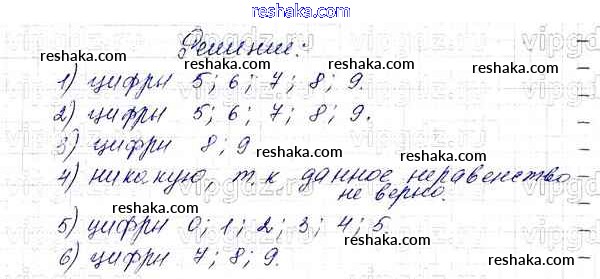 reshaka.com
Решение:
reshaka.com reshaka.com
1) цифры 5; 6; 7; 8; 9.
reshaka.com
2) цифры 5; 6; 7; 8; 9.
reshaka.com
3) цифры 8; 9
reshaka.com
4) никакую, т.к данное неравенство
не верно.
reshaka.com reshaka.com
5) цифры 0; 1; 2; 3; 4; 5
reshaka.com
6) цифры 7; 8; 9.
reshaka.com reshaka.com